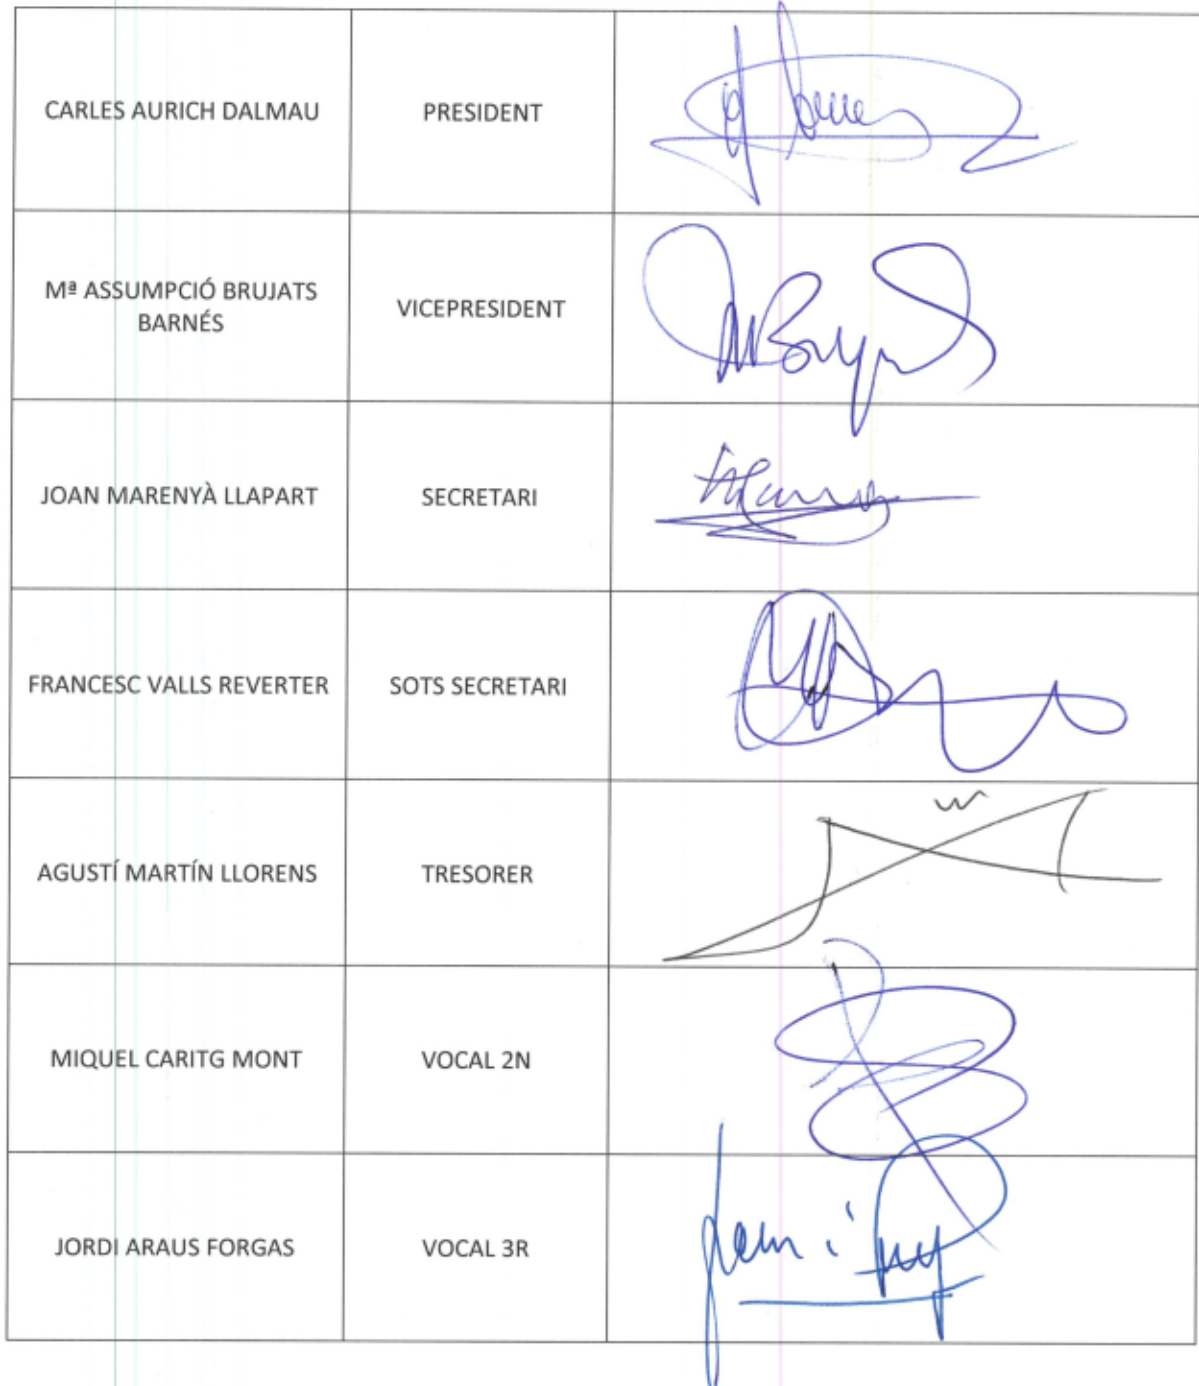 CARLES AURICH DALMAU PRESIDENT
Mª ASSUMPCIÓ BRUJATS
BARNÉS VICEPRESIDENT
JOAN MARENYÀ LLAPART SECRETARI
FRANCESC VALLS REVERTER SOTS SECRETARI
AGUSTÍ MARTÍN LLORENS TRESORER
MIQUEL CARITG MONT VOCAL 2N
JORDI ARAUS FORGAS VOCAL 3R